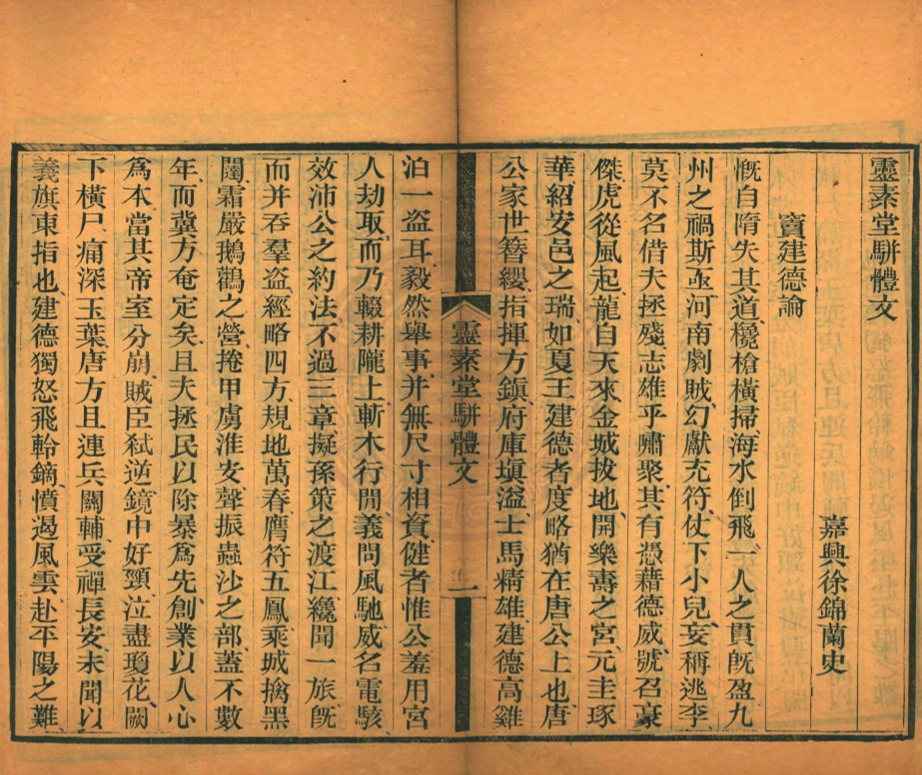 靈素堂駢體文
嘉興徐錦蘭史
竇建德論
慨自隋失其道欃槍橫掃海水倒飛一人之貫旣盈九
州之禍斯亟河南劇賊幻獻充符仗下小兒妄稱逃李
莫不名借夫拯殘志雄乎嘯聚其有憑藉德威號召豪
傑虎從風起龍自天來金城拔地開樂壽之宮元圭琢
華紹安邑之瑞如夏王建德者度略猶在唐公上也唐
公家世簪纓指揮方鎭府庫塡溢士馬精雄建德高雞
靈素堂駢體文
一
泊一盜耳毅然舉事并無尺寸相資健者惟公羞用宮
人劫取而乃輟耕隴上斬木行閒義問風馳威名電駭
效沛公之約法不過三章擬孫策之渡江纔聞一旅旣
而并吞羣盜經略四方規地萬春膺符五鳳乘城擒黑
闥霜嚴鵝鸛之營捲甲虜淮安聲振蟲沙之部蓋不數
年而冀方奄定矣且夫拯民以除暴爲先創業以人心
爲本當其帝室分崩賊臣弒逆鏡中好頸泣盡瓊花闕
下橫尸痛深玉葉唐方且連兵關輔受禪長安未聞以
義旗東指也建德獨怒飛軨鏑憤遏風雲赴平陽之難